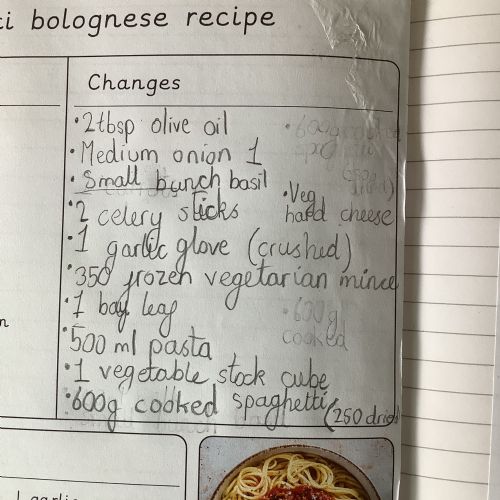 i bolognese recipe
Changes
• 2tbsp olive oil
• Medium onion 1
• Small bunch basil
• 2 celery sticks
• 1 garlic glove (crushed)
• 350 frozen vegetarian mince
• 1 bay leaf
• 500 ml pasta
• 1 vegetable stock cube
• 600g cooked spaghetti (250 dried
• Veg
hard cheese
• 600g
cooked
n